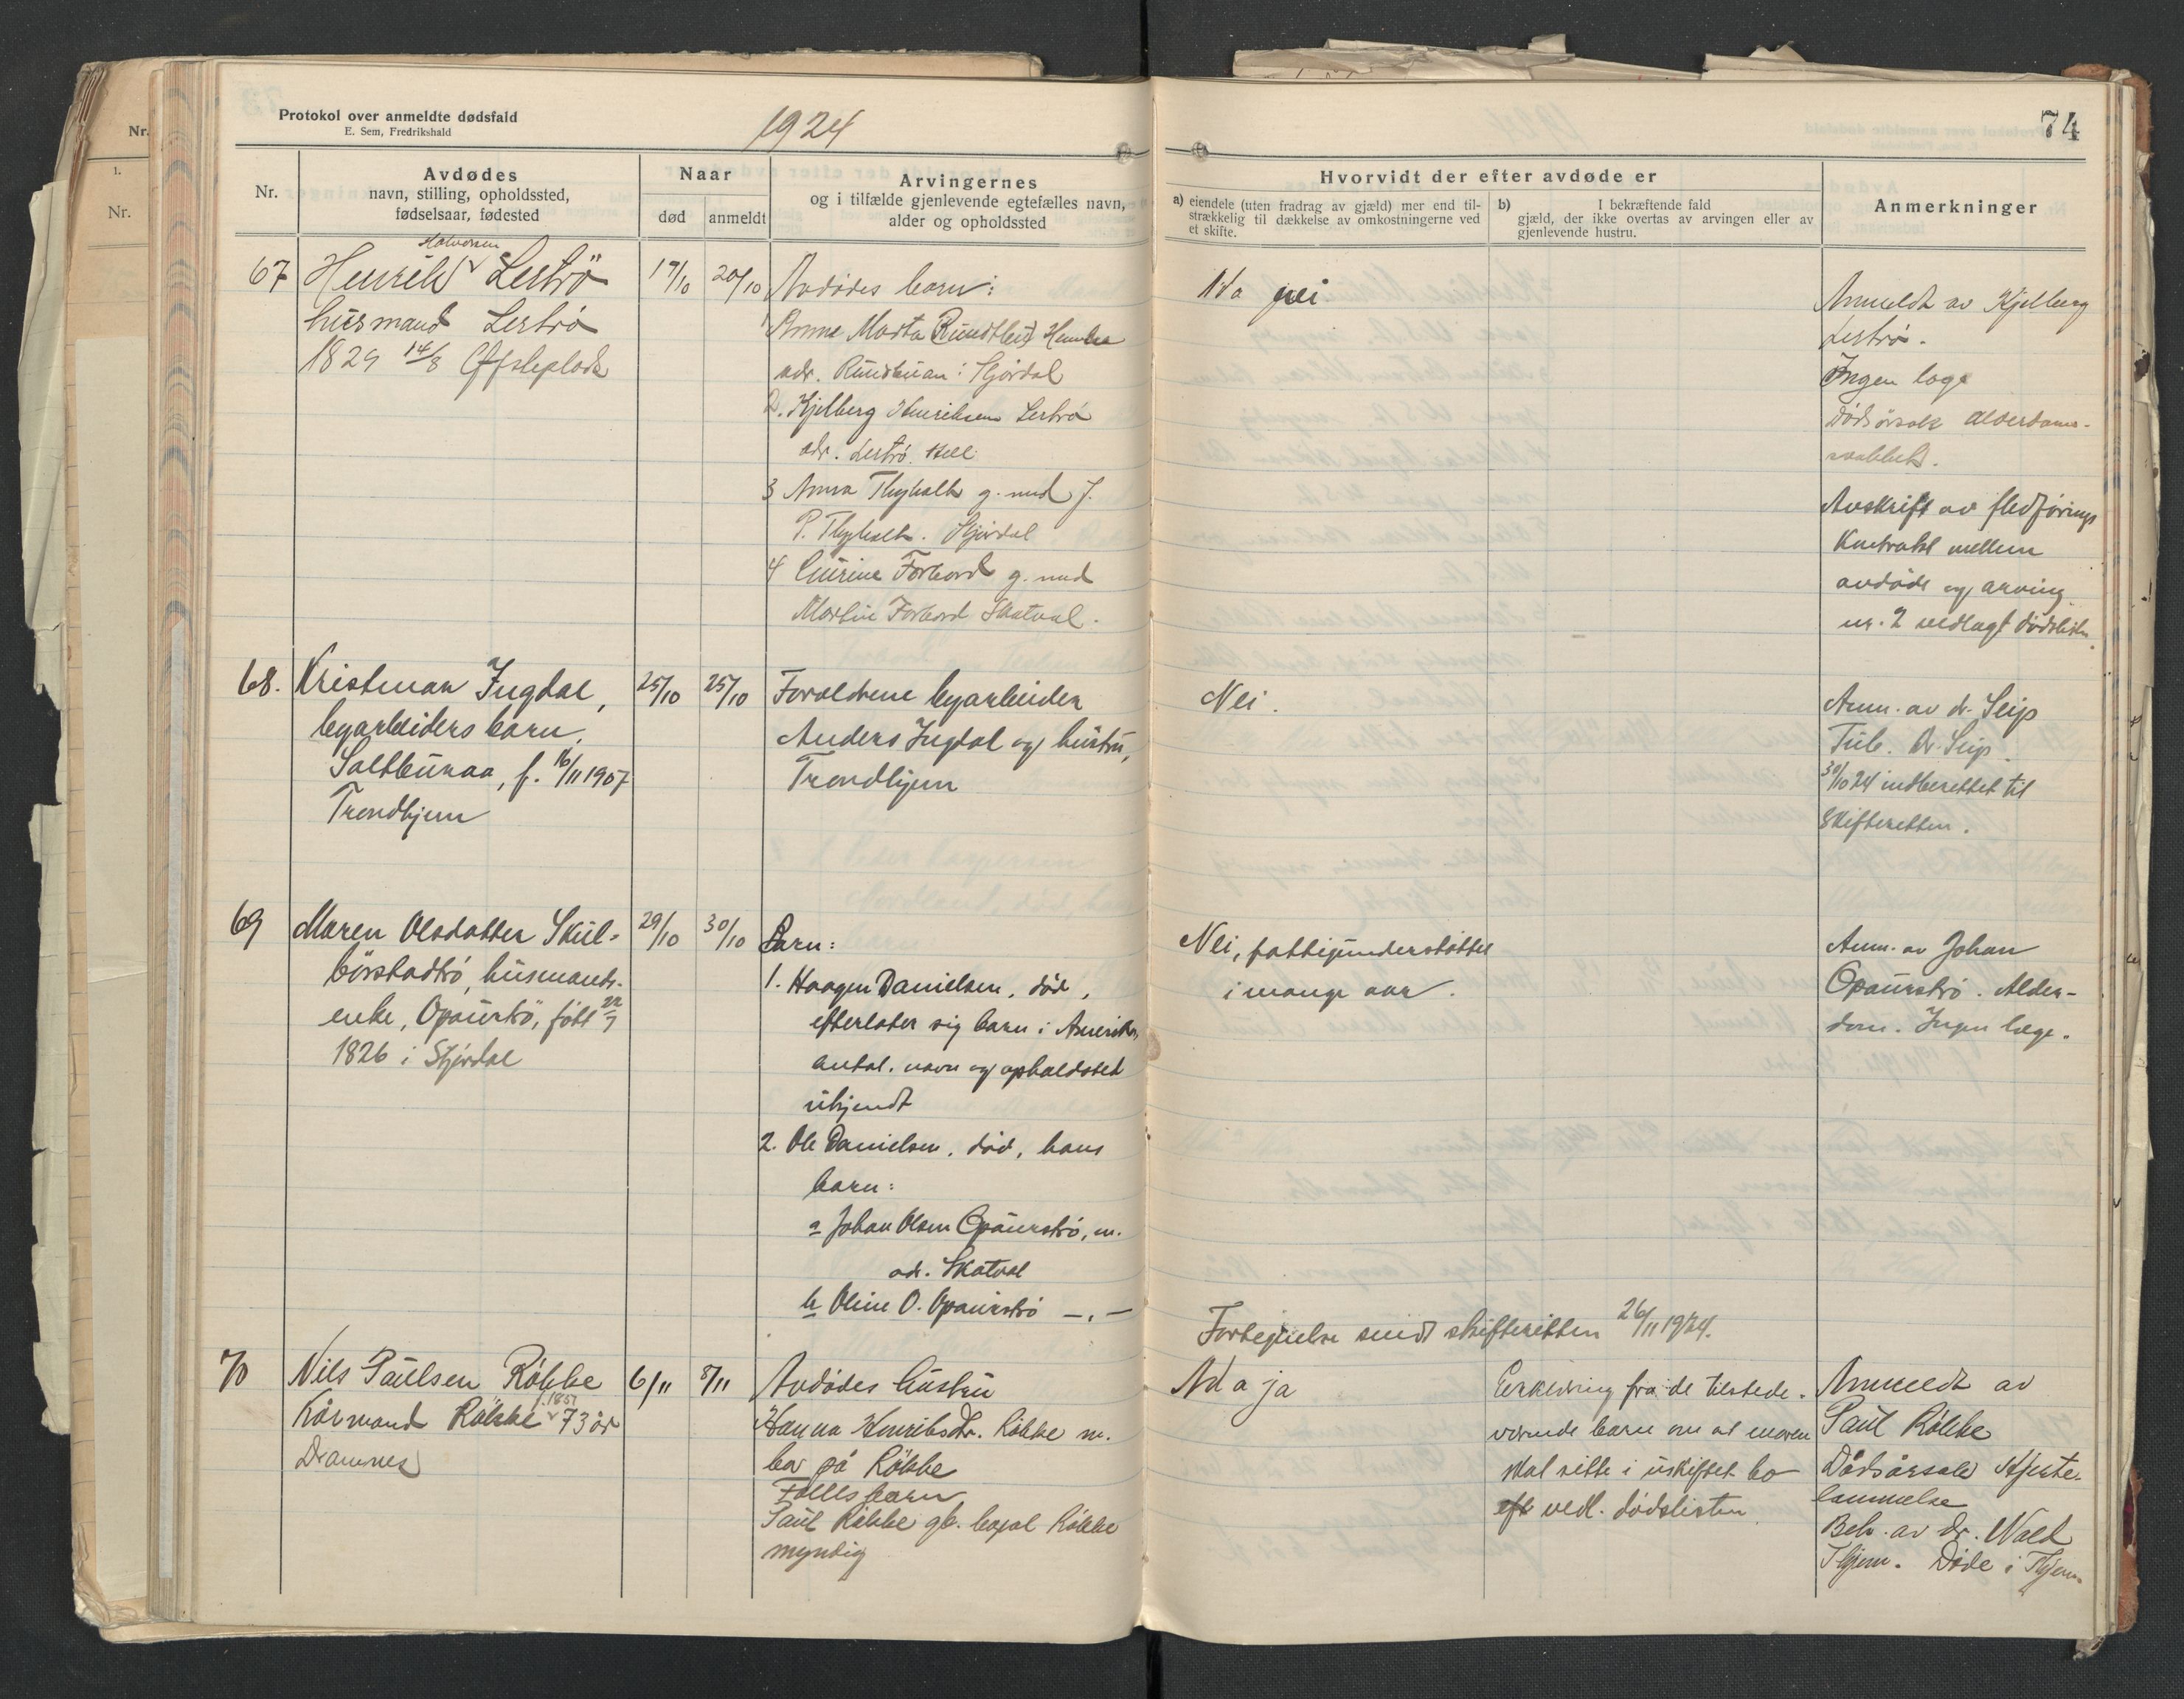 Protokol over anmeldte dødsfald
E. Sem, Fredrikshald
1924
74
Nr.
Avdødes
navn, stilling, opholdssted,
fødselsaar, fødested
Naar
død
anmeldt
Arvingernes
og i tilfælde gjenlevende egtefælles navn,
alder og opholdssted
Hvorvidt der efter avdøde er
a) eiendele (uten fradrag av gjæld) mer end til-
strækkelig til dækkelse av omkostningerne ved
et skifte.
b) I bekræftende fald
gjæld, der ikke overtas av arvingen eller av
gjenlevende hustru.
Anmerkninger
67
Halvorsen
Henrik Lerbrö
husmand Lerbrö
1829 14/8
17/10
20/10
Avdødes barn:
1 Anne Marta
adr. i Stjørdal
2. Kjelberg Henriksen Lerbrö
adr. Lerbrö
3 Anna g. med J.
P. Stjørdal
4 Gurine Forbord g. med
Martin Forbord Skatval.
nei
Anmeldt av Kjelberg
Lerbrö.
Ingen læge
Dødsörsak alderdoms-
svakhet.
Avskrift av fledførings
Kontrakt mellem
avdøde og arving
nr. 2 vedlagt dødslisten.
68.
Kristman Ingdal,
byarbeiders barn,
f. 16/11 1907
Trondhjem
25/10
25/10
Forældrene byarbeider
Anders Ingdal og hustru,
Trondhjem
Nei.
Anm. av dr. Seip
Tub. Dr. Seip.
30/10 24 indberettet til
Skifteretten.
69
Maren Olsdatter Skul-
börstadtrö, husmands-
enke, Opaurtrö, født 22/7
1826 i Stjørdal
29/10
30/10
Barn:
1. Haagen Danielsen, død,
efterlater sig barn i Amerika,
antal, navn og opholdssted
ukjendt
2. Ole Danielsen, død, hans
barn:
a Johan Olsen Opaurströ, m.
adr. Skatval
b Oline O. Opaurströ —„—
Nei, fattigunderstøttet
i mange aar.
Anm. av Johan
Opaurströ. Alder-
dom. Ingen læge.
Fortegnelse sendt skifteretten 26/11 1924.
70
Nils Paulsen Røkke
f. 1851
Kårmand Røkke 73 år
Dramnes
6/11
8/11
Avdødes hustru
Hanna Henriksdtr. Røkke m.
bor på Røkke
Fælles barn
Paul Røkke gb. bopæl Røkke
myndig
Ad a ja
Erklæring fra de tilstede-
værende barn om at moren
skal sitte i uskiftet bo
vedl. dødslisten.
Anmeldt av
Paul Røkke
Dødsårsak Hjerte-
lammelse
Beh. av Dr. Wald
Thjem. Døde i Thjem.